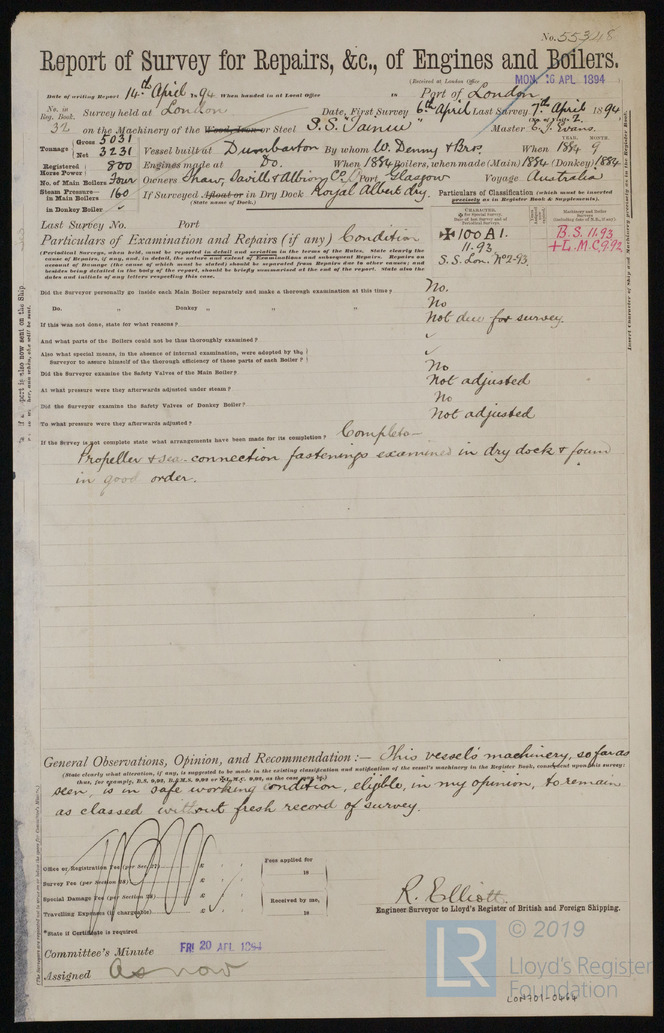 No. 55348
Report of Survey for Repairs, &c., of Engines and Boilers.
(Received at London Office MON. 16 APL 1894
Date of writing Report 14th April 1894 When handed in at Local Office 18 Port of London
No. in Reg. Book. Survey held at London Date, First Survey 6th April Last Survey 7th April 1894
32 on the Machinery of the Wood, Iron or Steel S.S. "Tainui" Master Evans.
Tonnage Gross 5031 Net 3231 Vessel built at Dumbarton By whom W. Denny & Bros. When 1884 9
Registered Horse Power 800 Engines made at Do. When 1884 Boilers, when made (Main) 1884 (Donkey) 1884
No. of Main Boilers Four Owners Shaw, Savill & Albion Co. Port Glasgow Voyage Australia
Steam Pressure in Main Boilers 160 If Surveyed Afloat or in Dry Dock Royal Albert dry.
(State name of Dock.)
in Donkey Boiler ✓
Particulars of Classification (which must be inserted precisely as in Register Book & Supplements).
Last Survey No. Port
✠ 100 A1.
11.93
S.S. Lon. No 2-93
B.S. 11.93
+L.M.C. 9.92
Particulars of Examination and Repairs (if any) Condition
Did the Surveyor personally go inside each Main Boiler separately and make a thorough examination at this time? No.
Do. " Donkey " " " No
If this was not done, state for what reasons? Not due for survey.
And what parts of the Boilers could not be thus thoroughly examined? ✓
Also what special means, in the absence of internal examination, were adopted by the Surveyor to assure himself of the thorough efficiency of those parts of each Boiler? ✓
Did the Surveyor examine the Safety Valves of the Main Boilers? No
At what pressure were they afterwards adjusted under steam? Not adjusted
Did the Surveyor examine the Safety Valves of Donkey Boiler? No
To what pressure were they afterwards adjusted? Not adjusted
If the Survey is not complete state what arrangements have been made for its completion? Complete
Propeller & sea-connection fastenings examined in dry dock & found
in good order.
General Observations, Opinion, and Recommendation:— This vessel's machinery, so far as
(State clearly what alteration, if any, is suggested to be made in the existing classification and notification of the vessel's machinery in the Register Book, consequent upon this survey:
thus, for example, B.S. 9,93, B.&M.S. 9,93 or ✠L.M.C. 9,93, as the case may be.)
seen, is in safe working condition, eligible, in my opinion, to remain
as classed without fresh record of survey.
Office or Registration Fee (per Sec. 27) £
Survey Fee (per Section 28) £
Special Damage Fee (per Section 28) £
Travelling Expenses (if chargeable) £
Fees applied for
18
Received by me,
18
R. Elliott
Engineer Surveyor to Lloyd's Register of British and Foreign Shipping.
*State if Certificate is required
Committee's Minute FRI 20 APL 1894
Assigned As now
LR
© 2019
Lloyd's Register
Foundation
LON701-0464